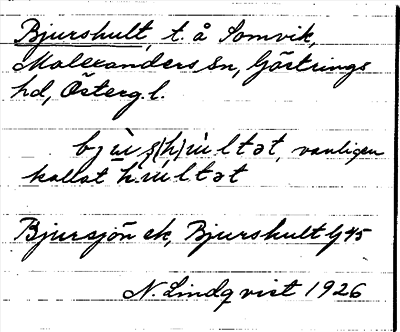 Bjurshult, t. å Somvik,
Malexanders sn, Göstrings
hd, Österg. l.
bjùʂ(h)ùltət, vanligen
kallat hùltət
Bjursjön ek, Bjurshult G45
N. Lindqvist 1926